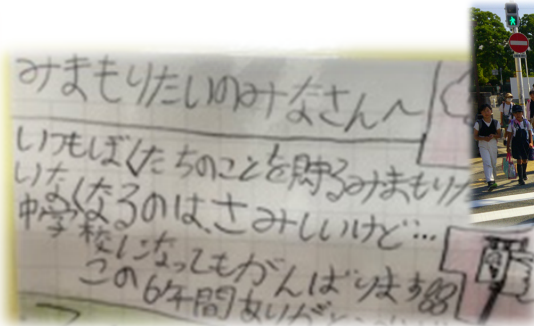 みまもりたいのみなさんへ
いつもぼくたちのことを貯るみまもりた
いなくなるのは、さみしいけど…
中学校になってもがんばります
この6年間ありがと